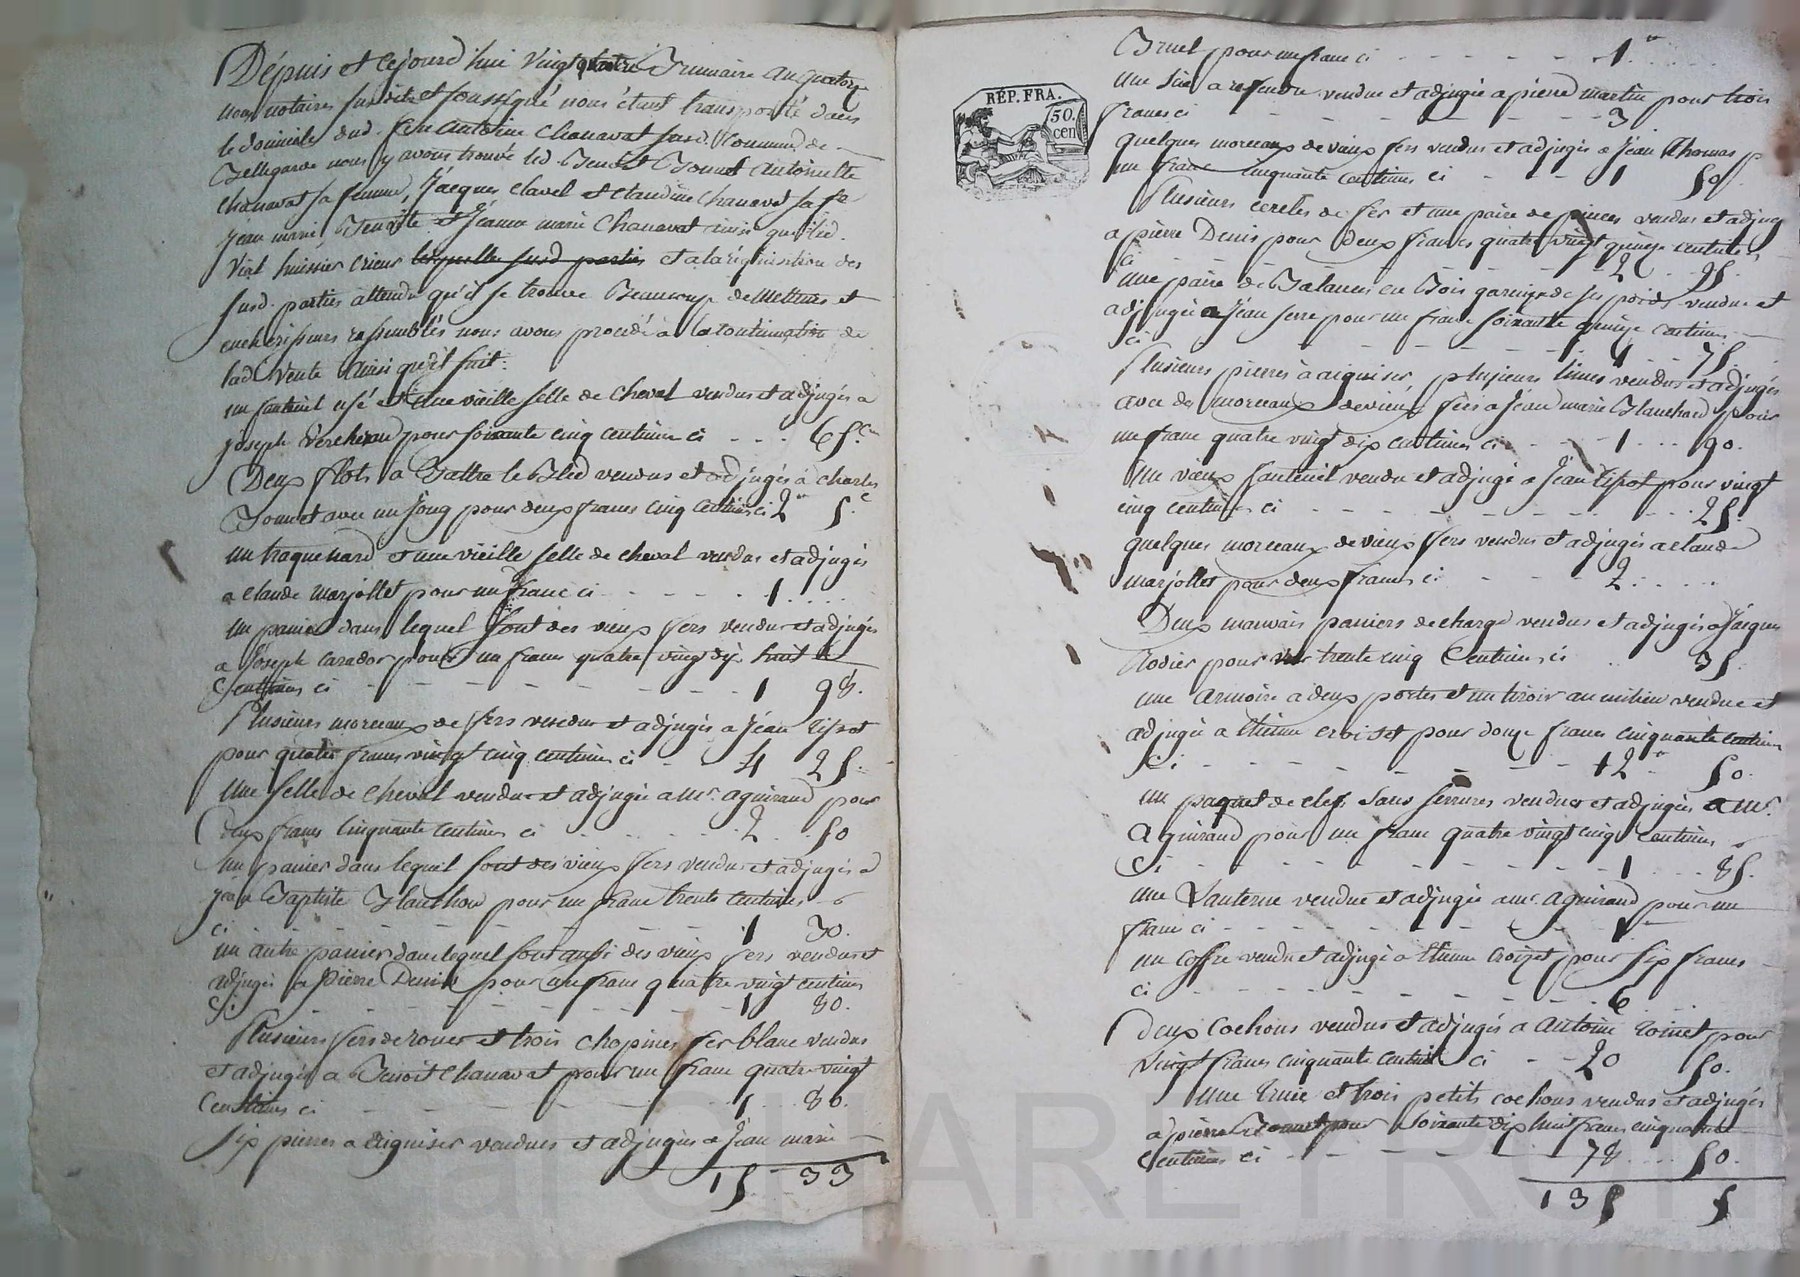 Dépuis et cejourd'hui vingt quatre Frimaire an quatorze
nous notaires susdits et soussigné nous étant transporté dans
le domicile dud. feu antoine chanavat susd. Commune de
Bellegarde nous y avons trouvé led Benoit Bonnet antoinette
chanavat sa femme, Jacques clavel et claudine chanavat sa fe
jean marie, Benoite et Jeanne marie Chanavat ainsi que led.
Vial huissier crieur lesquelles susd parties et ala réquisition des
susd. parties attendu qu'il se trouve Beaucoup de Metteurs et
encherisseurs rassemblés nous avons procédé à la continuation de
lad. vente ainsi qu'il suit:
un fauteuil usé et une vieille selle de cheval vendus et adjugés a
joseph pour soixante cinq centimes ci - - - 65 c
Deux flots a Battre le Bled vendus et adjugés à charles
Bonnet avec un joug pour deux francs cinq centimes ci 2 5 c
un traquenard et une vieille selle de cheval vendus et adjugés
a claude marjollet pour un franc ci - - - - 1
un panier dans lequel sont des vieux fers vendus et adjugés
a Joseph carador pour un franc quatre vingt dix huit
Centimes ci - - - - - - - 1 98.
Plusieurs morceaux de fers vendus et adjugés a Jean Tissot
pour quatre francs vingt cinq centimes ci - - 4 25
Une selle de cheval vendue et adjugée a Mr. aguiraud pour
deux francs cinquante centimes ci - - - - 2 50
un panier dans lequel sont des vieux fers vendus et adjugés a
jean Baptiste Blanchon pour un franc trente centimes
ci - - - - - - - 1 30.
un autre panier dans lequel sont aussi des vieux fers vendus et
adjugés a pierre Denis pour un franc quatre vingt centimes
Ci - - - - - - - 1 80.
Plusieurs fers de roues et trois chopines fer blanc vendus
et adjugés a Benoit Chanavat pour un franc quatre vingt
Centimes ci - - - - - - - 1 80.
six pierres a éguiser vendues et adjugées a Jean marie
15 33
Bruel pour un franc ci - - - - - - 1.
REP. FRA.
50.
cen
une scie a refendre vendue et adjugée a pierre martin pour trois
francs ci - - - - - - 3
quelques morceaux de vieux fers vendus et adjugés a Jean Thomas p
un franc cinquante centimes ci - - - - 1 50.
Plusieurs cercles de fer et une paire de pinces vendus et adjug
a pierre Denis pour deux francs quatre vingt quinze centimes
ci - - - - - - 2 95.
une paire de Balances en Bois garnie de ses poids vendue et
adjugée a Jean serre pour un franc soixante quinze centimes
ci - - - - - - 1 75.
Plusieurs pierres à aiguiser, plusieurs limes vendus et adjugés
avec des morceaux de vieux fers a Jean marie Blanchard pour
un franc quatre vingt dix centimes ci - - - 1 90.
Un vieux fauteuil vendu et adjugé a Jean tissot pour vingt
cinq centimes ci - - - - - - 25.
quelques morceaux de vieux fers vendus et adjugés a claude
marjollet pour deux francs ci - - - 2
Deux mauvais paniers de charge vendus et adjugés a Jacques
Rodier pour trente cinq Centimes ci 35.
une armoire a deux portes et un tiroir au milieu vendue et
adjugée a Etienne croizet pour douze francs cinquante centimes
Ci - - - - - - 12 50.
un paquet de clefs sans serrures vendues et adjugées a Mr.
aguiraud pour un franc quatre vingt cinq Centimes
Ci - - - - - - 1 85.
une Lanterne vendue et adjugée a mr. aguiraud pour un
franc ci - - - - - - 1
un coffre vendu et adjugé a Etienne croizet pour six francs
ci - - - - - - 6
deux cochons vendus et adjugés a antoine Toinet pour
vingt francs cinquante centimes ci - - 20 50.
Une Truie et trois petits cochons vendus et adjugés
a pierre Bonnet pour soixante dix huit francs cinquante
Centimes ci - - - - - 78 50.
135 5